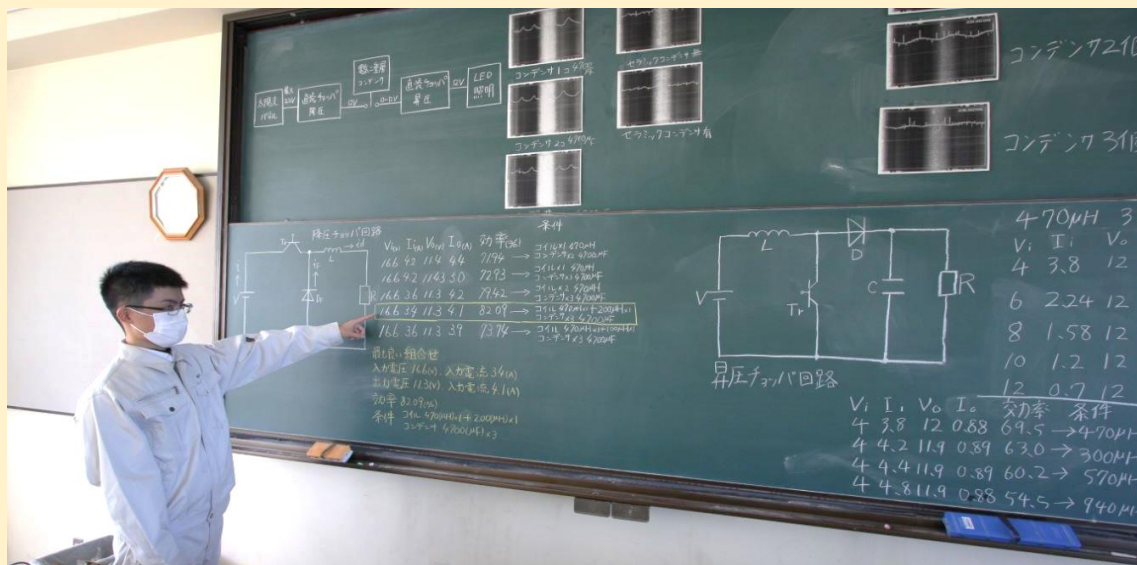 太陽光パネル
最大
直流チョッパ降圧
12V
電気二重層コンデンサ
0~12V
直流チョッパ昇圧
12V
LED照明
コンデンサ1コ 4700μF
コンデンサ2コ 4700μF
セラミックコンデンサ無
セラミックコンデンサ有
コンデンサ2個
コンデンサ3個
降圧チョッパ回路
Tr
L
id
V
R
条件
Vi(V) Ii(A) Vo(V) Io(A) 効率(%)
16.6 4.2 11.4 4.4 71.94 → コイル×1 470μH
コンデンサ×2 4700μF
16.6 4.2 11.43 3.0 72.93 → コイル×1 470μH
コンデンサ×3 4700μF
16.6 3.6 11.3 4.2 79.42 → コイル×2 470μH
コンデンサ×3 4700μF
16.6 3.4 11.3 4.1 82.09 → コイル 470μH×1+200μH×1
コンデンサ×3 4700μF
16.6 3.6 11.3 3.9 73.74 → コイル 470μH×1+100μH×1
コンデンサ×3 4700μF
最も良い組合せ
入力電圧 16.6(V)、入力電流 3.4(A)
出力電圧 11.3(V)、入力電流 4.1(A)
効率 82.09(%)
条件 コイル 470(μH)×1+200(μH)×1
コンデンサ 4700(μF)×3
L
D
V
Tr
C
R
昇圧チョッパ回路
470μH 3
Vi Ii Vo
4 3.8 12
6 2.24 12
8 1.58 12
10 1.2 12
12 0.7 12
Vi Ii Vo Io 効率 条件
4 3.8 12 0.88 69.5 → 470μH
4 4.2 11.9 0.89 63.0 → 300μH
4 4.4 11.9 0.89 60.2 → 570μH
4 4.8 11.9 0.88 54.5 → 940μH